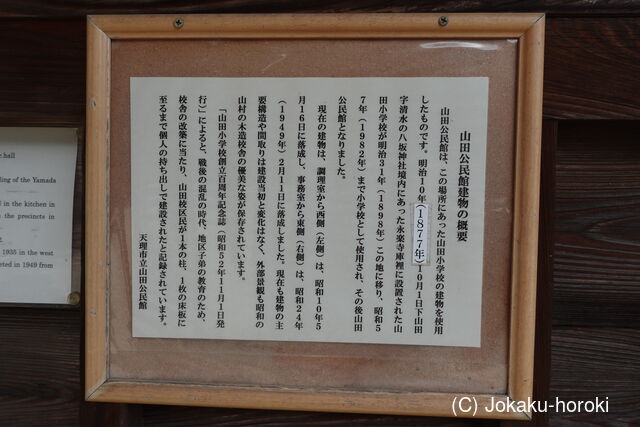 山田公民館建物の概要
山田公民館は、この場所にあった山田小学校の建物を使用
したものです。明治10年(1877年)10月1日下山田
字清水の八坂神社境内にあった永楽寺庫裡に設置された山
田小学校が明治31年(1898年)この地に移り、昭和5
7年(1982年)まで小学校として使用され、その後山田
公民館となりました。
現在の建物は、調理室から西側(左側)は、昭和10年5
月16日に落成し、事務室から東側(右側)は、昭和24年
(1949年)2月11日に落成しました。現在も建物の主
要構造や間取りは建設当初と変化はなく、外部景観も昭和の
山村の木造校舎の優美な姿が保存されています。
「山田小学校創立百周年記念誌(昭和52年11月1日発
行)」によると、戦後の混乱の時代、地区子弟の教育のため、
校舎の改築に当たり、山田校区民が1本の柱、1枚の床板に
至るまで個人の持ち出しで建設されたと記録されています。
天理市立山田公民館
hall
ling of the Yamada
in the kitchen in
the precincts in
1935 in the west
eted in 1949 from
(C) Jokaku-horoki